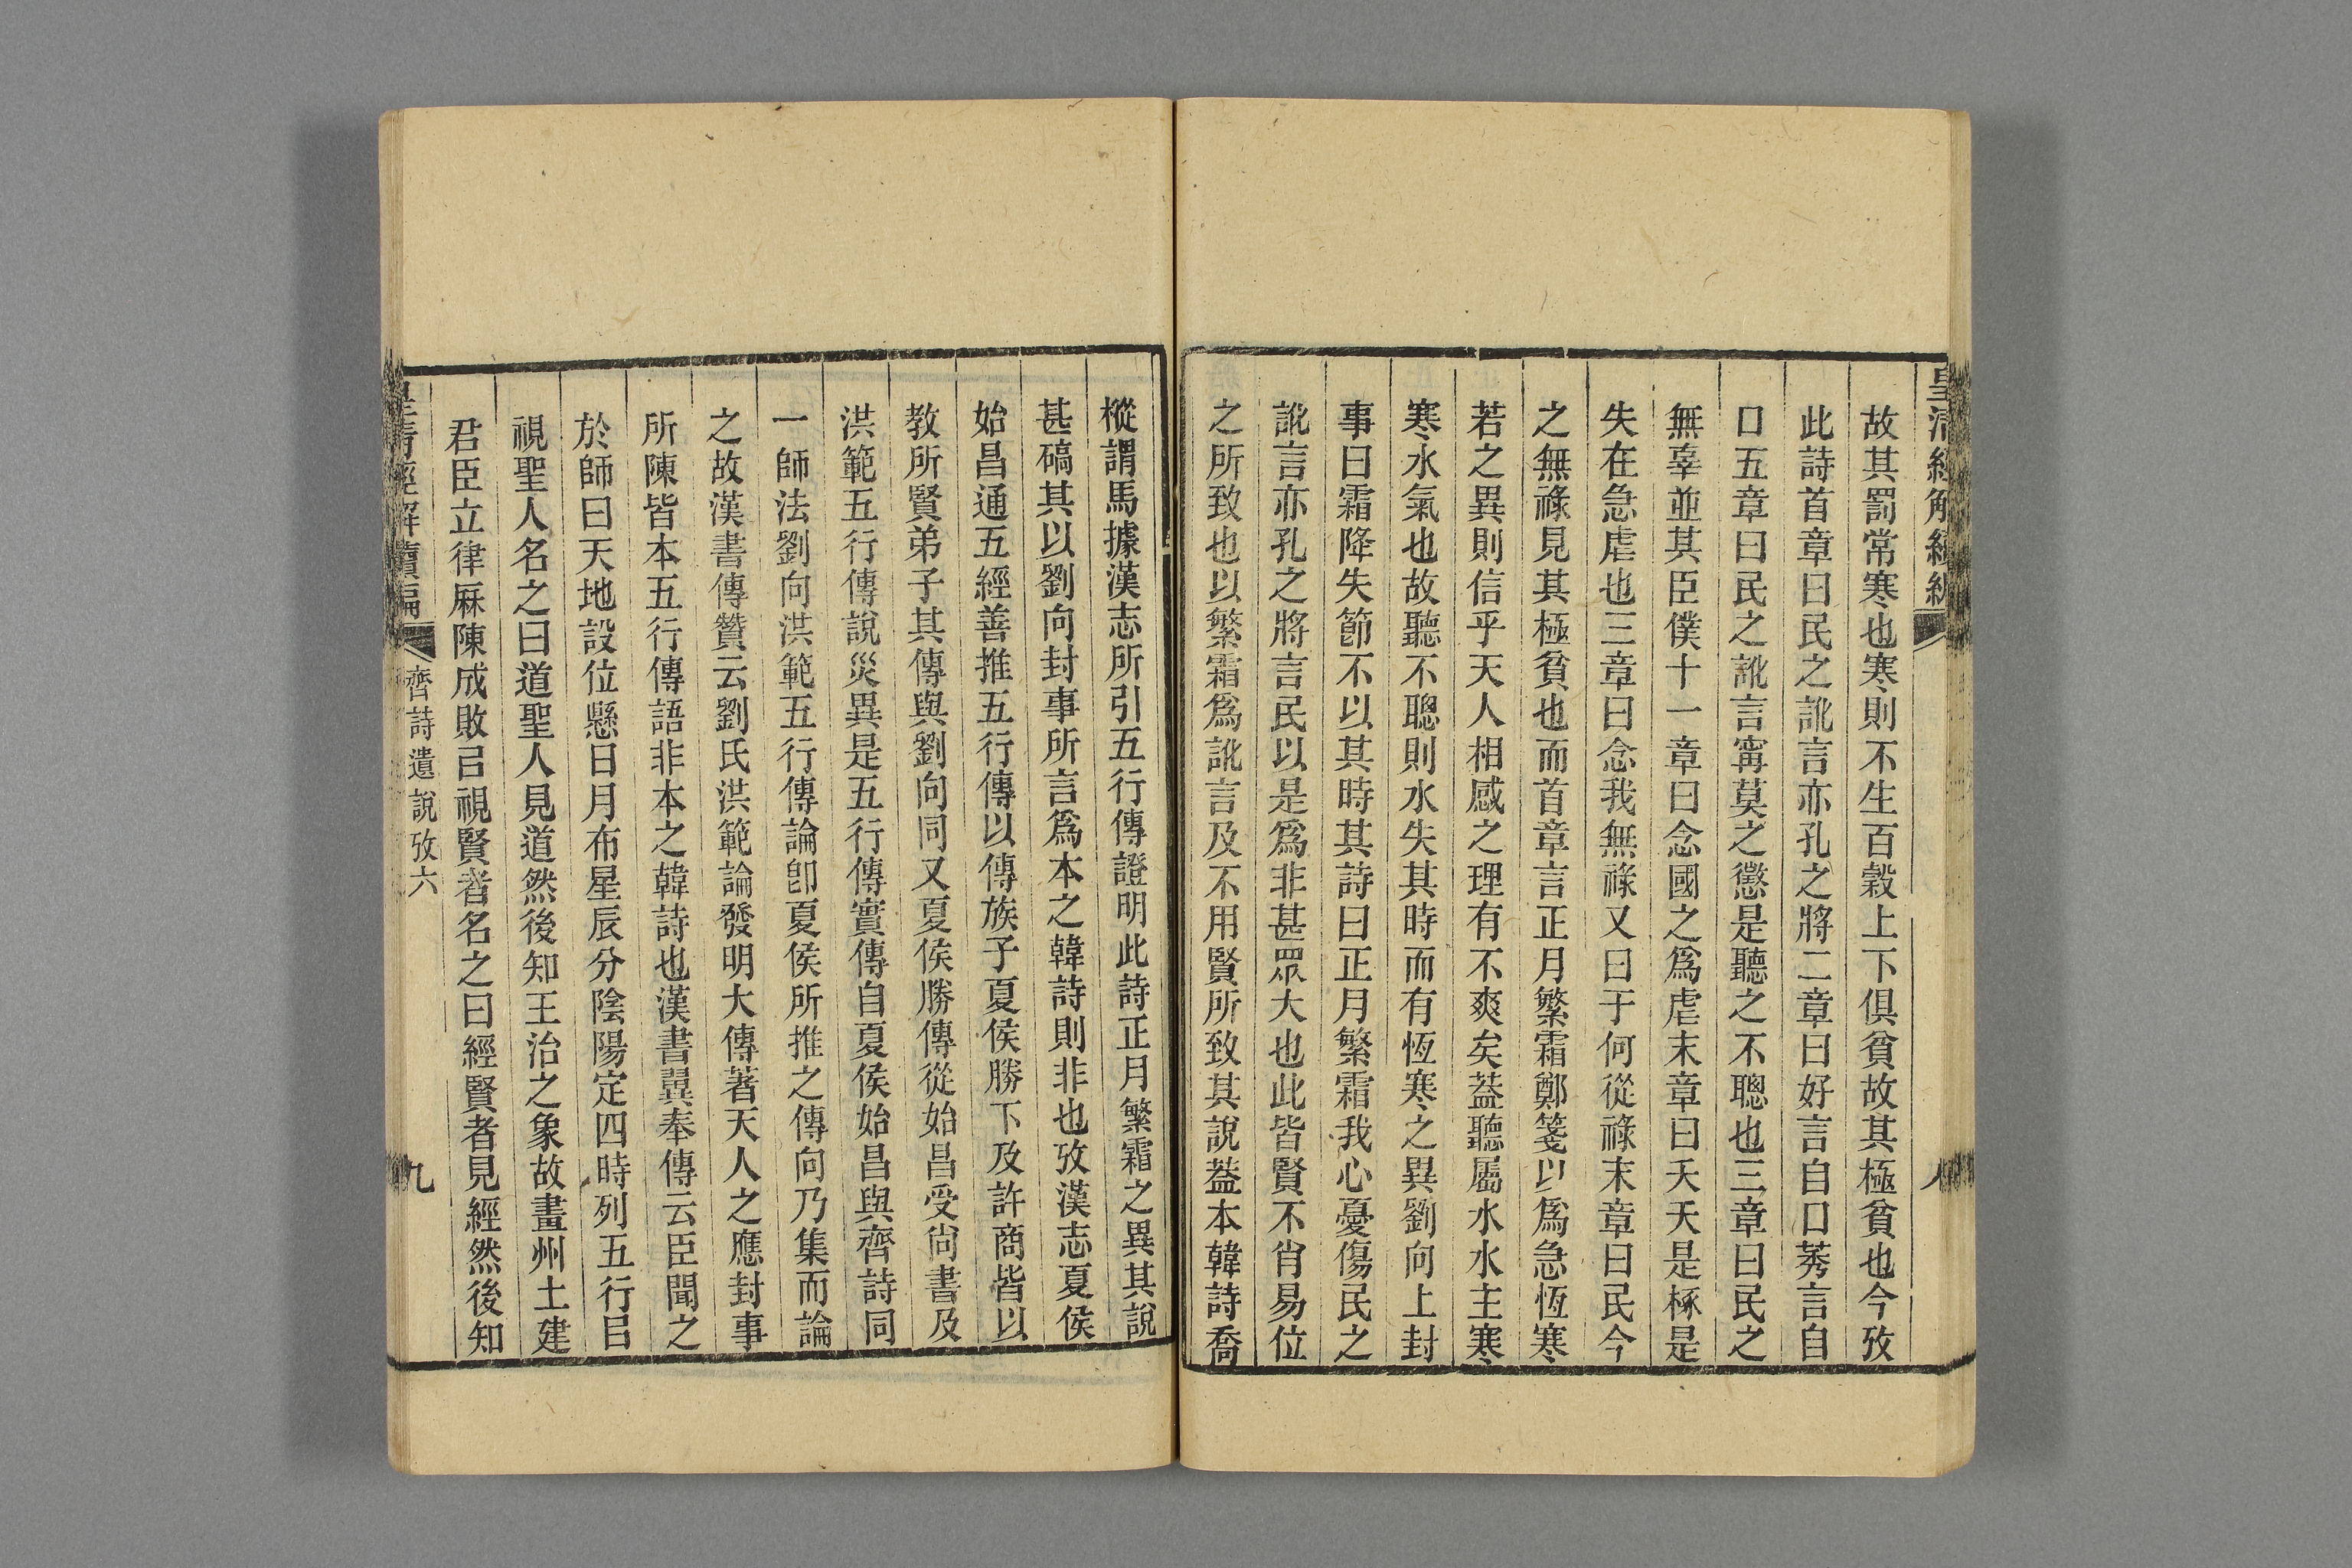 皇清經解續編
八
故其罰常寒也寒則不生百穀上下俱貧故其極貧也今攷
此詩首章曰民之訛言亦孔之將二章曰好言自口莠言自
口五章曰民之訛言寗莫之懲是聽之不聰也三章曰民之
無辜並其臣僕十一章曰念國之爲虐末章曰天夭是椓是
失在急虐也三章曰念我無祿又曰于何從祿末章曰民今
之無祿見其極貧也而首章言正月繁霜鄭箋以爲急恆寒
若之異則信乎天人相感之理有不爽矣葢聽屬水水主寒
寒水氣也故聽不聰則水失其時而有恆寒之異劉向上封
事曰霜降失節不以其時其詩曰正月繁霜我心憂傷民之
訛言亦孔之將言民以是爲非甚眾大也此皆賢不肖易位
之所致也以繁霜爲訛言及不用賢所致其說葢本韓詩喬
樅謂馬據漢志所引五行傳證明此詩正月繁霜之異其說
甚碻其以劉向封事所言爲本之韓詩則非也攷漢志夏侯
始昌通五經善推五行傳以傳族子夏侯勝下及許商皆以
教所賢弟子其傳與劉向同又夏侯勝傳從始昌受尙書及
洪範五行傳說災異是五行傳實傳自夏侯始昌與齊詩同
一師法劉向洪範五行傳論卽夏侯所推之傳向乃集而論
之故漢書傳贊云劉氏洪範論發明大傳著天人之應封事
所陳皆本五行傳語非本之韓詩也漢書翼奉傳云臣聞之
於師曰天地設位懸日月布星辰分陰陽定四時列五行㠯
視聖人名之曰道聖人見道然後知王治之象故畫州土建
君臣立律厤陳成敗㠯視賢者名之曰經賢者見經然後知
皇清經解續編
齊詩遺說攷六
九